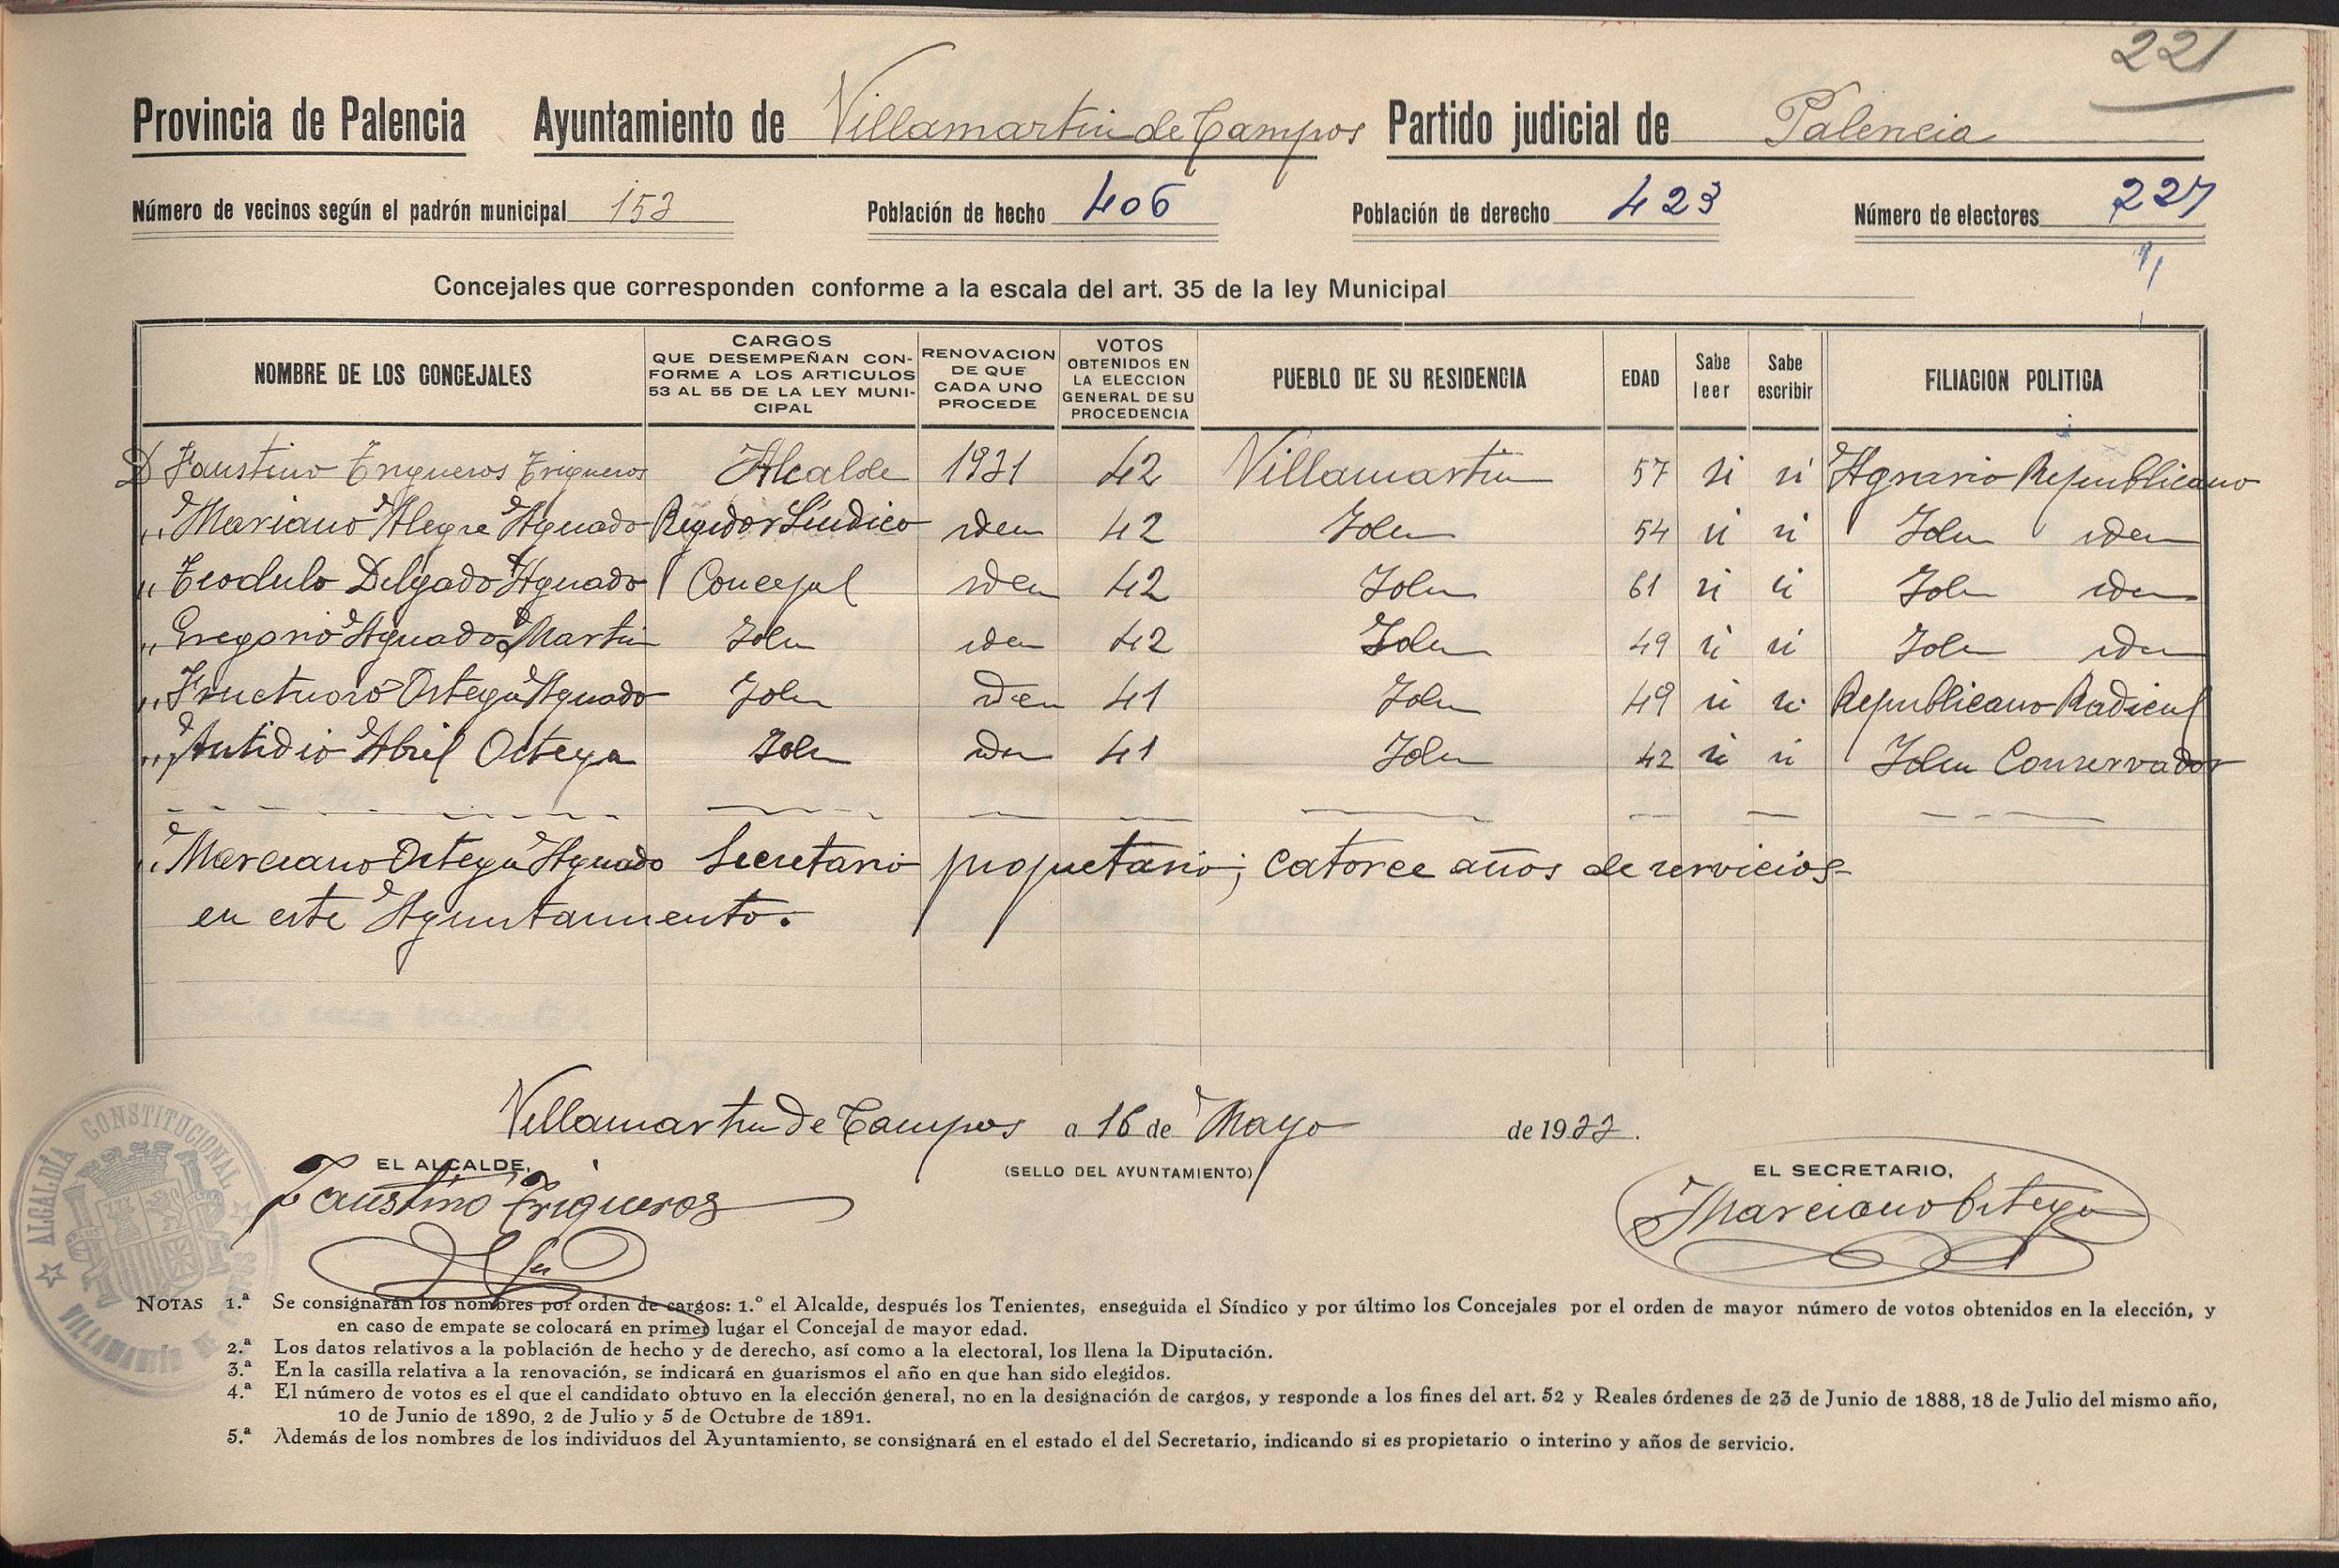 221
Provincia de Palencia Ayuntamiento de Villamartin de Campos Partido judicial de Palencia
Número de vecinos según el padrón municipal 153 Población de hecho 406 Población de derecho 423 Número de electores 227
Concejales que corresponden conforme a la escala del art. 35 de la ley Municipal
NOMBRE DE LOS CONCEJALES
CARGOS
QUE DESEMPEÑAN CON-
FORME A LOS ARTICULOS
53 AL 55 DE LA LEY MUNI-
CIPAL
RENOVACION
DE QUE
CADA UNO
PROCEDE
VOTOS
OBTENIDOS EN
LA ELECCION
GENERAL DE SU
PROCEDENCIA
PUEBLO DE SU RESIDENCIA
EDAD
Sabe
leer
Sabe
escribir
FILIACION POLITICA
D Faustino Trigueros Trigueros Alcalde 1931 42 Villamartin 57 si si Agrario Republicano
" Mariano Alegre Aguado Regidor Sindico iden 42 Iden 54 si si Iden iden
" Teodulo Delgado Aguado Concejal iden 42 Iden 61 si si Iden iden
" Gregorio Aguado Martin Iden iden 42 Iden 49 si si Iden iden
" Fructuoso Ortega Aguado Iden iden 41 Iden 49 si si Republicano Radical
" Antidio Abril Ortega Iden iden 41 Iden 42 si si Iden Conservador
" Marciano Ortega Aguado Secretario propietario; catorce años de servicios
en este Ayuntamiento.
Villamartin de Campos a 16 de Mayo de 1933.
EL ALCALDE,
(SELLO DEL AYUNTAMIENTO)
EL SECRETARIO,
Faustino Trigueros
Marciano Ortega
ALCALDÍA CONSTITUCIONAL
VILLAMARTÍN DE
NOTAS 1.ª Se consignarán los nombres por orden de cargos: 1.º el Alcalde, después los Tenientes, enseguida el Síndico y por último los Concejales por el orden de mayor número de votos obtenidos en la elección, y
en caso de empate se colocará en primer lugar el Concejal de mayor edad.
2.ª Los datos relativos a la población de hecho y de derecho, así como a la electoral, los llena la Diputación.
3.ª En la casilla relativa a la renovación, se indicará en guarismos el año en que han sido elegidos.
4.ª El número de votos es el que el candidato obtuvo en la elección general, no en la designación de cargos, y responde a los fines del art. 52 y Reales órdenes de 23 de Junio de 1888, 18 de Julio del mismo año,
10 de Junio de 1890, 2 de Julio y 5 de Octubre de 1891.
5.ª Además de los nombres de los individuos del Ayuntamiento, se consignará en el estado el del Secretario, indicando si es propietario o interino y años de servicio.